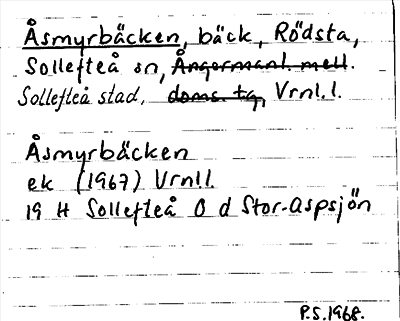 Åsmyrbäcken, bäck, Rödsta,
Sollefteå sn, Ångermanl. mell.
Sollefteå stad, doms. tg, Vrnl.l.
Åsmyrbäcken
ek (1967) Vrnll.
19 H Sollefteå O d Stor-Aspsjön
P.S.1968.